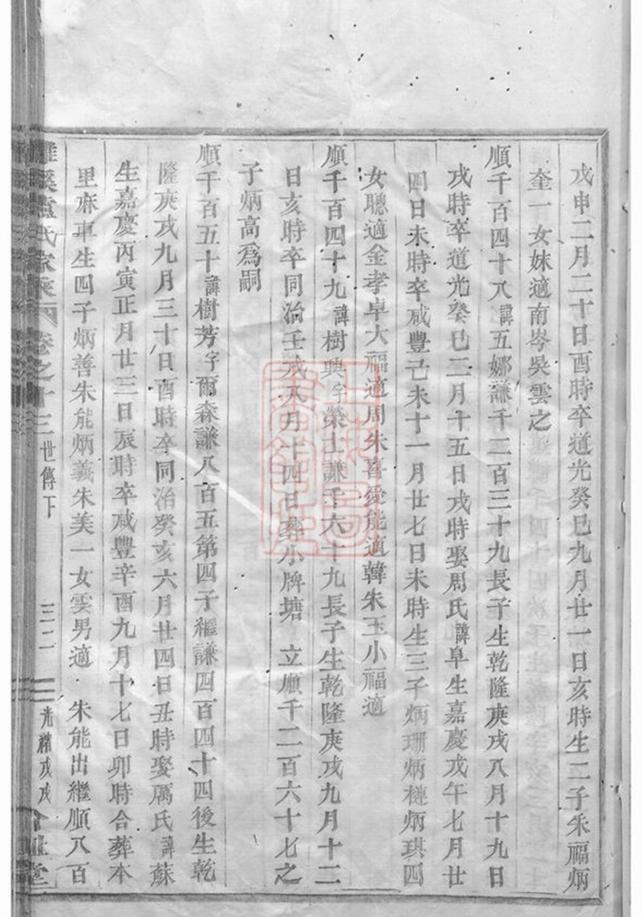 戊申二月二十日酉時卒道光癸巳九月廿一日亥時生二子朱福炳
奎一女妹適南岑吳雲之
順千百四十八諱五娜謙千二百三十九長子生乾隆庚戌八月十九日
戌時卒道光癸巳二月十五日戌時娶周氏諱阜生嘉慶戊午七月廿
四日未時卒咸豐己未十一月廿七日未時生三子炳珊炳槤炳琪四
女聰適金孝卓大福適周朱喜愛能適韓朱玉小福適
順千百四十九諱樹典字榮士謙千六十九長子生乾隆庚戌九月十二
日亥時卒同治壬戌八月十四日葬小牌塘 立順千二百六十七之
子炳高為嗣
順千百五十諱樹芳字爾森謙八百五第四子繼謙四百四十四後生乾
隆庚戌九月三十日酉時卒同治癸亥六月廿四日丑時娶厲氏諱蘇
生嘉慶丙寅正月廿三日辰時卒咸豐辛酉九月十七日卯時合葬本
里麻車生四子炳善朱能炳義朱美一女雲男適 朱能出繼順八百
盧氏家乘 卷之十三 世傳下 三二 光緒戊戌